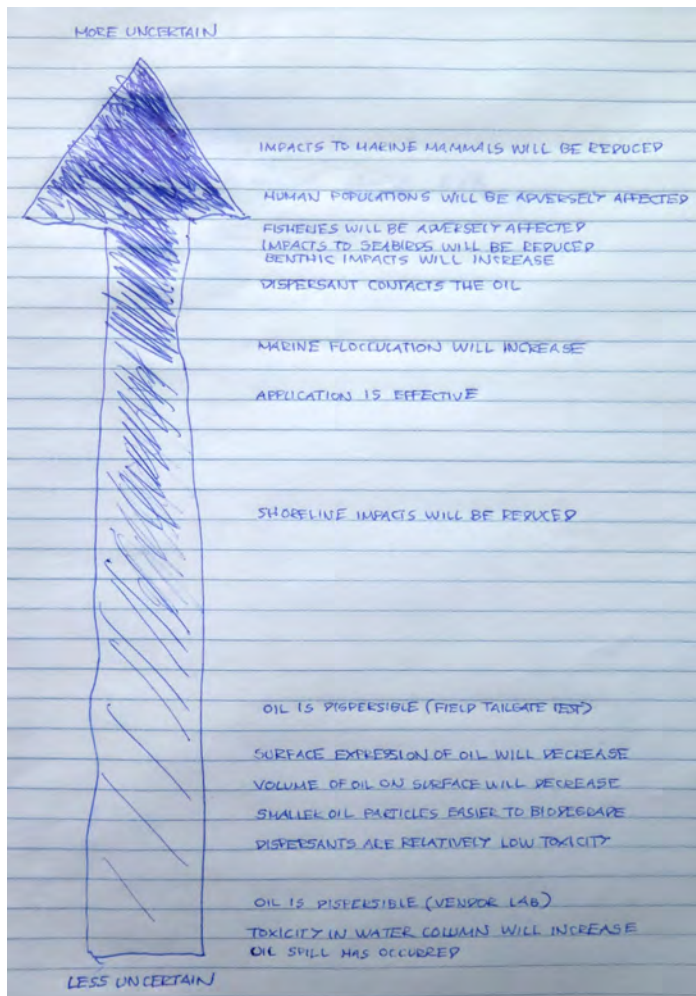 MORE UNCERTAIN
IMPACTS TO MARINE MAMMALS WILL BE REDUCED
HUMAN POPULATIONS WILL BE ADVERSELY AFFECTED
FISHERIES WILL BE ADVERSELY AFFECTED
IMPACTS TO SEABIRDS WILL BE REDUCED
BENTHIC IMPACTS WILL INCREASE
DISPERSANT CONTACTS THE OIL
MARINE FLOCCULATION WILL INCREASE
APPLICATION IS EFFECTIVE
SHORELINE IMPACTS WILL BE REDUCED
OIL IS DISPERSIBLE (FIELD TAILGATE TEST)
SURFACE EXPRESSION OF OIL WILL DECREASE
VOLUME OF OIL ON SURFACE WILL DECREASE
SMALLER OIL PARTICLES EASIER TO BIODEGRADE
DISPERSANTS ARE RELATIVELY LOW TOXICITY
OIL IS DISPERSIBLE (VENDOR LAB)
TOXICITY IN WATER COLUMN WILL INCREASE
OIL SPILL HAS OCCURRED
LESS UNCERTAIN